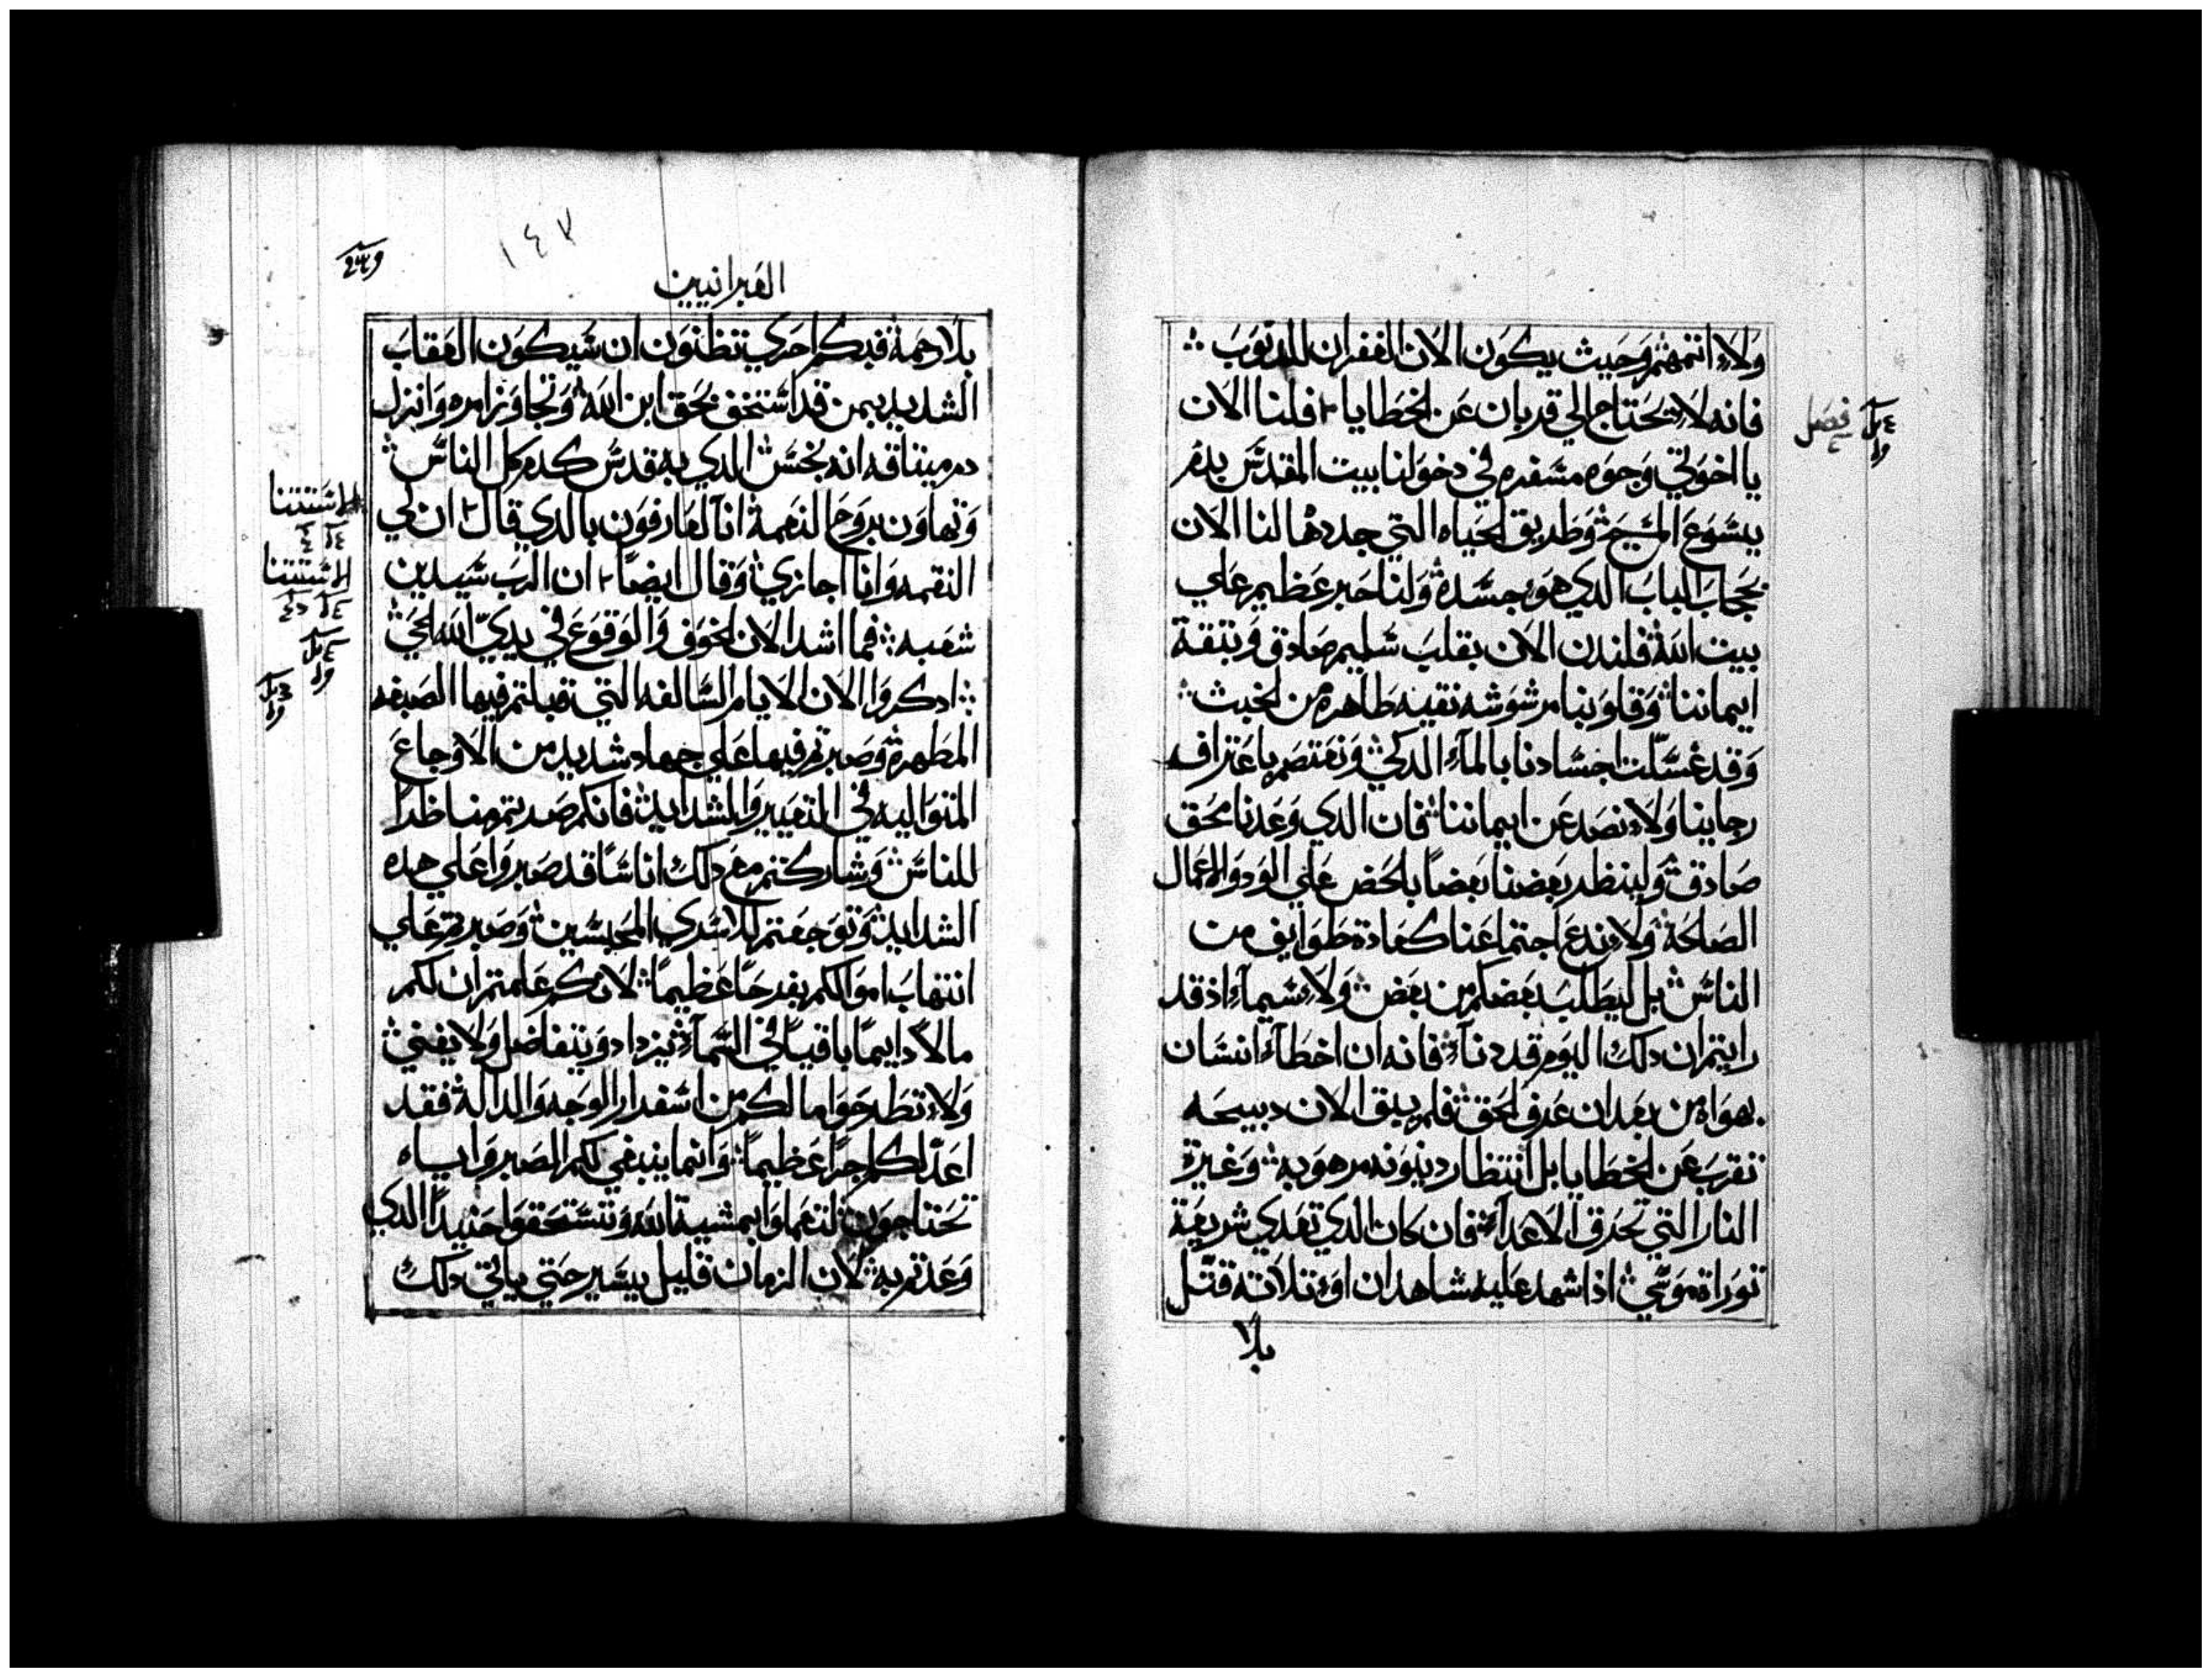 ولاء اثمهم وحيث يكون الان الغفران للدنوب
فانه لا يحتاج الي قربان عن الخطايا فلنا الان
فصل
يا اخوتي وجوه مسفره في دخولنا بيت المقدس بدم
يسوع المسيح وطريق الحياه التي جددها لنا الان
بحجاب الباب الدي هو جسده ولنا حبر عظيم علي
بيت الله فلندن الان بقلب سليم صادق وبتقة
ايماننا وقلوبنا مرشوشه نقيه طاهره من الخبث
وقد غسلت اجسادنا بالمآء الدكي ونعتصم باعتراف
رجاينا ولا نصد عن ايماننا فان الدي وعدنا محق
صادق ولينظر بعضنا بعضاً بالحض علي الود والاعمال
الصالحة ولا ندع اجتماعنا كعادة طوايف من
الناس بل ليطلب بعضكم من بعض ولا سيماء اذ قد
رايتم ان دلك اليوم قد دنآء فانه ان اخطآء انسان
بهواه من بعد ان عرف الحق فلم يبق الان دبيحه
تقرب عن الخطايا بل انتظار دينونه مرهوبه وغيرة
النار التي تحرق الاعدآء فان كان الدي تعدي شريعة
توراة موسي اذا شهد عليه شاهدان او تلاتة قتل
بلا
١٤٧
العبرانيين
بلا رحمة فبكم احري تظنون ان سيكون العقاب
الشديد بمن قد استخف بحق ابن الله وتجاوز امره وانزل
دم ميتاقه انه نجس الدي به قدس كدم كل الناس
وتهاون بروح النعمة انا لعارفون بالدي قال ان لي
الاستتنا
النقمه وانا اجازي وقال ايضاً ان الرب سيدين
الاستتنا
شعبه فما اشد الان الخوف والوقوع في يدي الله الحي
ادكروا الان الايام السالفه التي قبلتم فيها الصبغه
المطهرة وصبرتم فيها علي جهاد شديد من الاوجاع
المتواليه في التعيير والشدايد فانكم صدتم مناظراً
للناس وشاركتم مع دلك اناساً قد صبروا علي هده
الشدايد وتوجعتم للاسري المحبسين وصبرتم علي
انتهاب اموالكم بفرحاً عظيماً لانكم علمتم ان لكم
مالاً دايماً باقياً في السمآء يزداد ويتفاضل ولا يفني
ولا تطرحوا ما لكم من اسفرار الوجه والدالة فقد
اعد لكم اجراً عظيماً وانما ينبغي لكم الصبر واياه
تحتاجون لتعملوا بمشية الله وتستحقوا حنيداً الدي
وعدتم به لان الزمان قليل يسير حتي ياتي دلك